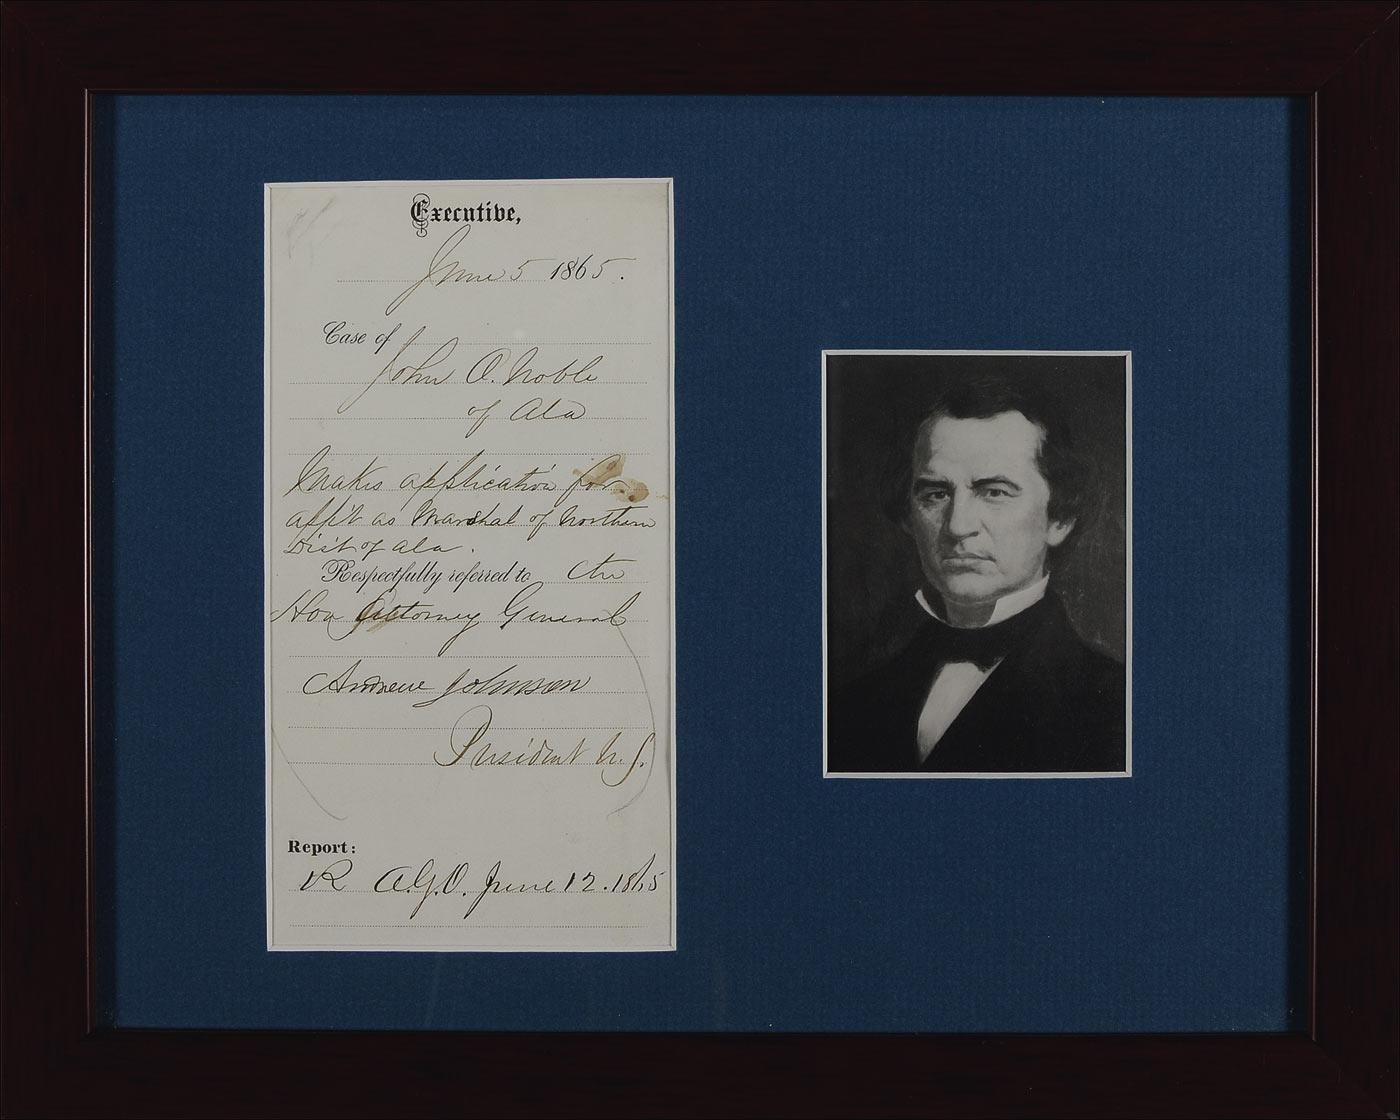 Executive,
June 5 1865.
Case of
John O. Noble
of Ala
Makes application for
app't as Marshal of Northern
Dist of Ala.
Respectfully referred to the
Hon Attorney General
Andrew Johnson
President U.S.
Report:
R A.G.O. June 12. 1865